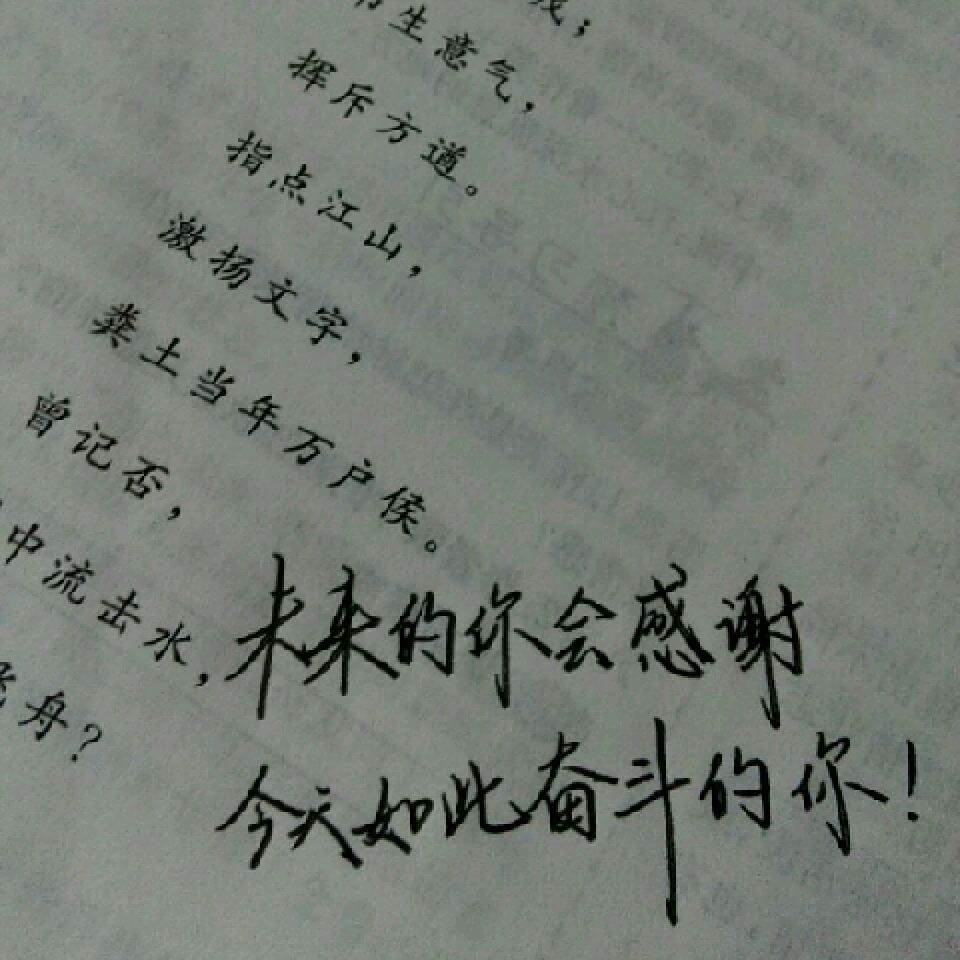 生意气，
挥斥方遒。
指点江山，
激扬文字，
粪土当年万户侯。
曾记否，
中流击水，
舟？
未来的你会感谢
今天如此奋斗的你！